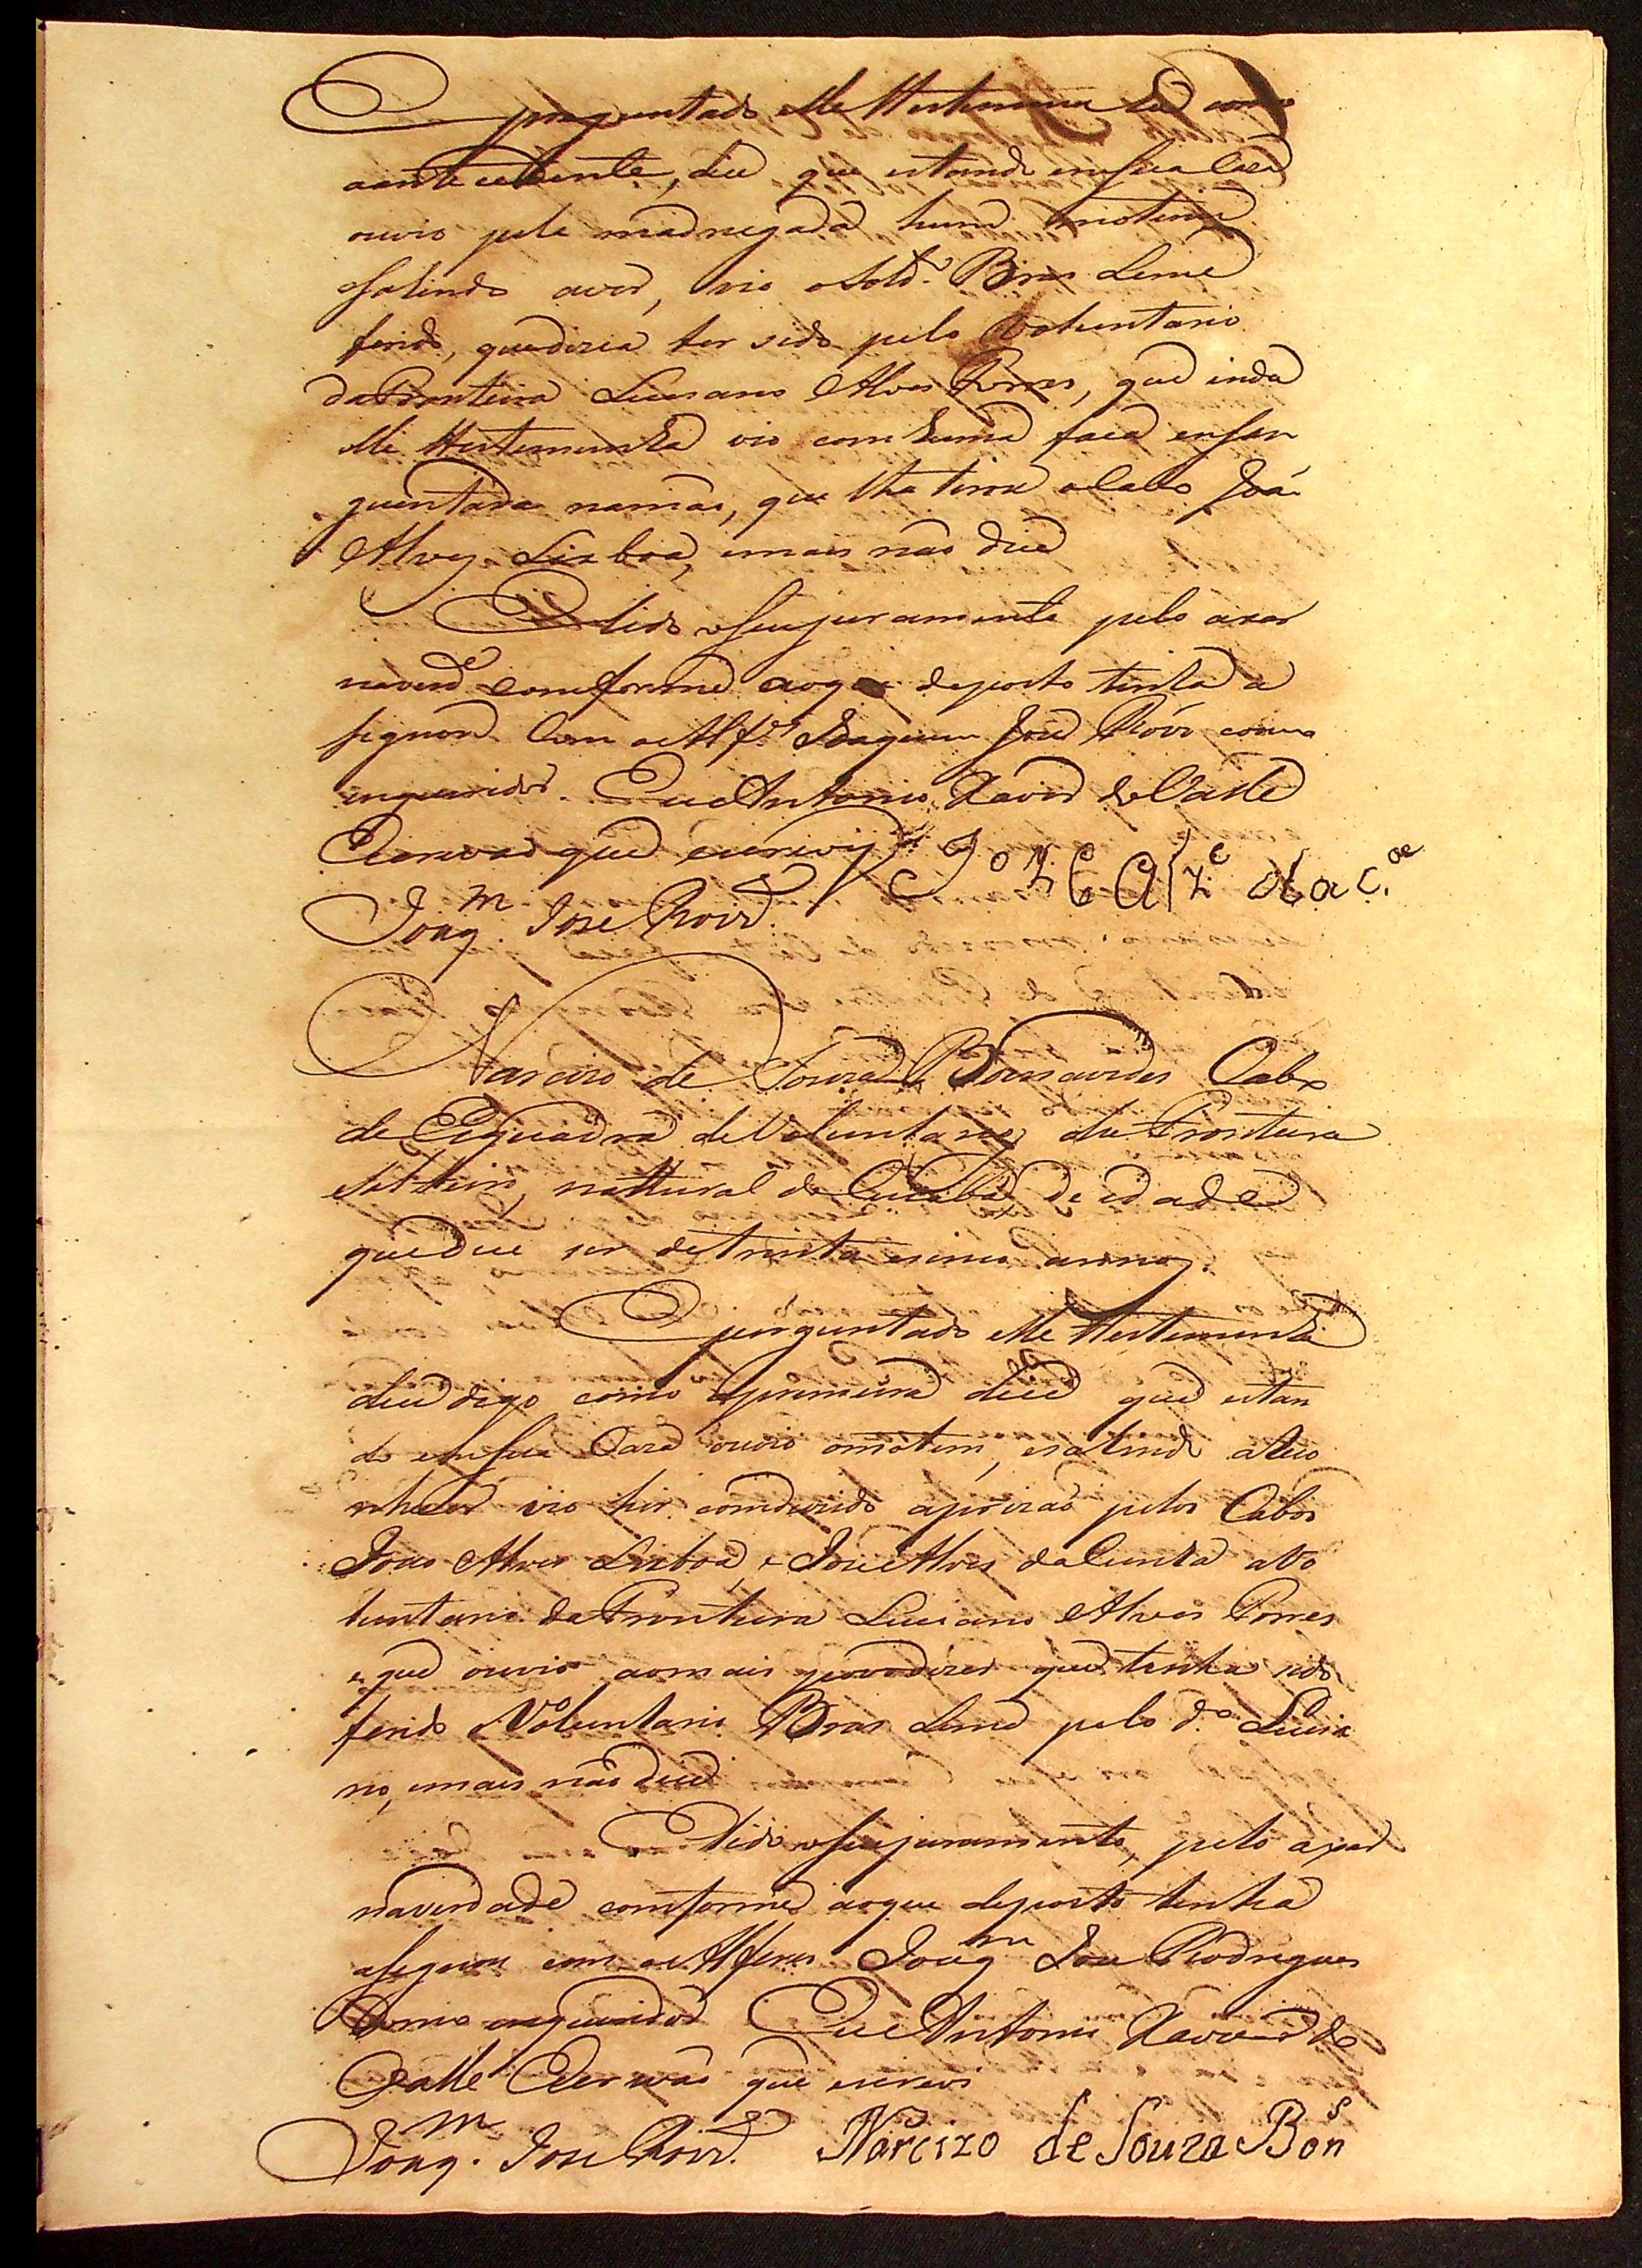 E perguntado elle testemunha digo como
aantecedente, dice que estando em sua Caza
ouvio pela madrugada hum motim, e
sahindo aver, vio o Sold.º Bras Leme
ferido, que dizia ter sido pelo Voluntario
da Fronteira Luciano Alves Torres, que inda
elle testemunha vio com huma faca ensan
guentada na mão, que lha tirou o Cabo João
Alvez Lisboa, emais não dice
E lido o seu juramento pelo axar
na verd.e comforme aoque deposto tinha a
signou Com o Alf.es Joaquim José Roiz como
inqueridor. Eu Antonio Xavier do Valle
Escrivão que escrevy
Joze Alz.e da C.ae
Joaq.m Jose Roiz.
Narcizo de Souza Bernardes Cabo
de Esquadra de Voluntarios da Fronteira
solteiro, nattural de Cuiabá, de idade
que dice ser de trinta esinco annos.
E perguntado elle testemunha
dice digo como aprimeira dice que estan
do em sua Caza ouvio o motim, esahindo a reco
nhecer vio hir comduzido aprizão pelos Cabos
João Alves Lisboa, e José Alves da Cunha ao Vo
luntario da Fronteira Luciano Alves Torres
e que ouvio aomais povo dizer que tinha sido
ferido o Voluntario Bras Leme pelo d.º Lucia
no, emais não dice
E lido o seu juramento, pelo axar
naverdade comforme aoque deposto tinha
asignou com o Alferes Joaq.m Jose Rodrigues
Como inqueridor Eu Antonio Xavier do
Valle Escrivão que escrevi
Joaq.m Jose Roiz. Narcizo de Souza Bon.s